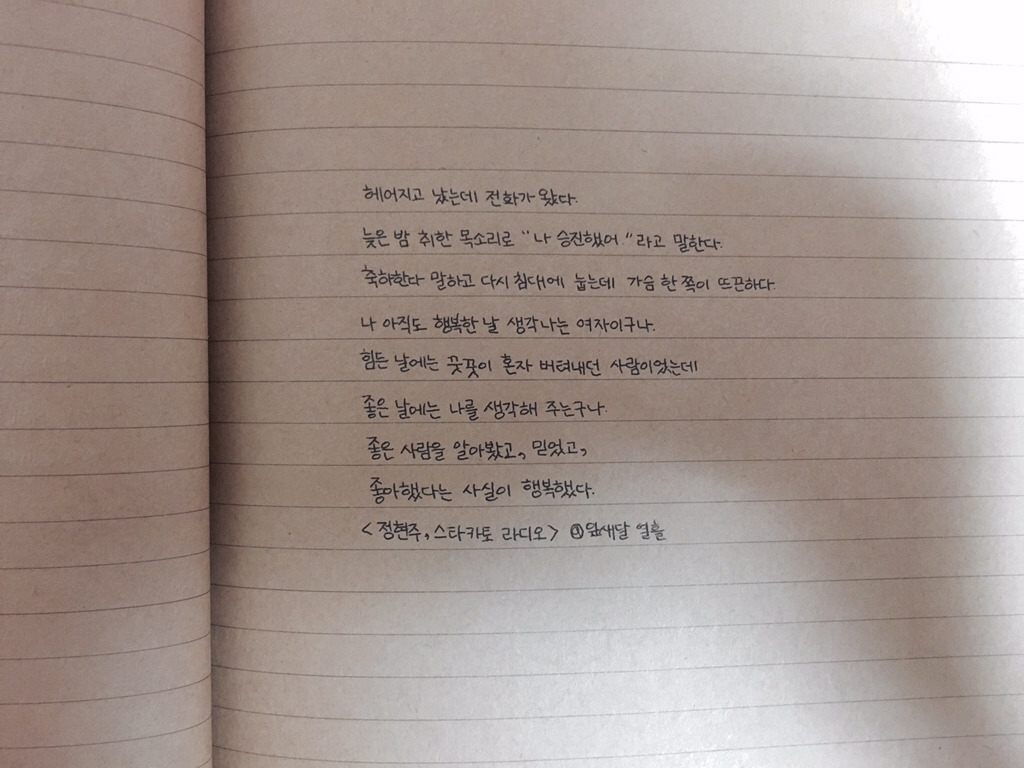 헤어지고 났는데 전화가 왔다.
늦은 밤 취한 목소리로 "나 승진했어." 라고 말한다.
축하한다 말하고 다시 침대에 눕는데 가슴 한 쪽이 뜨끈하다.
나 아직도 행복한 날 생각나는 여자이구나.
힘든 날에는 꿋꿋이 혼자 버텨내던 사람이었는데
좋은 날에는 나를 생각해 주는구나.
좋은 사람을 알아봤고, 믿었고,
좋아했다는 사실이 행복했다.
<정현주, 스타카토 라디오> 잎새달 열흘